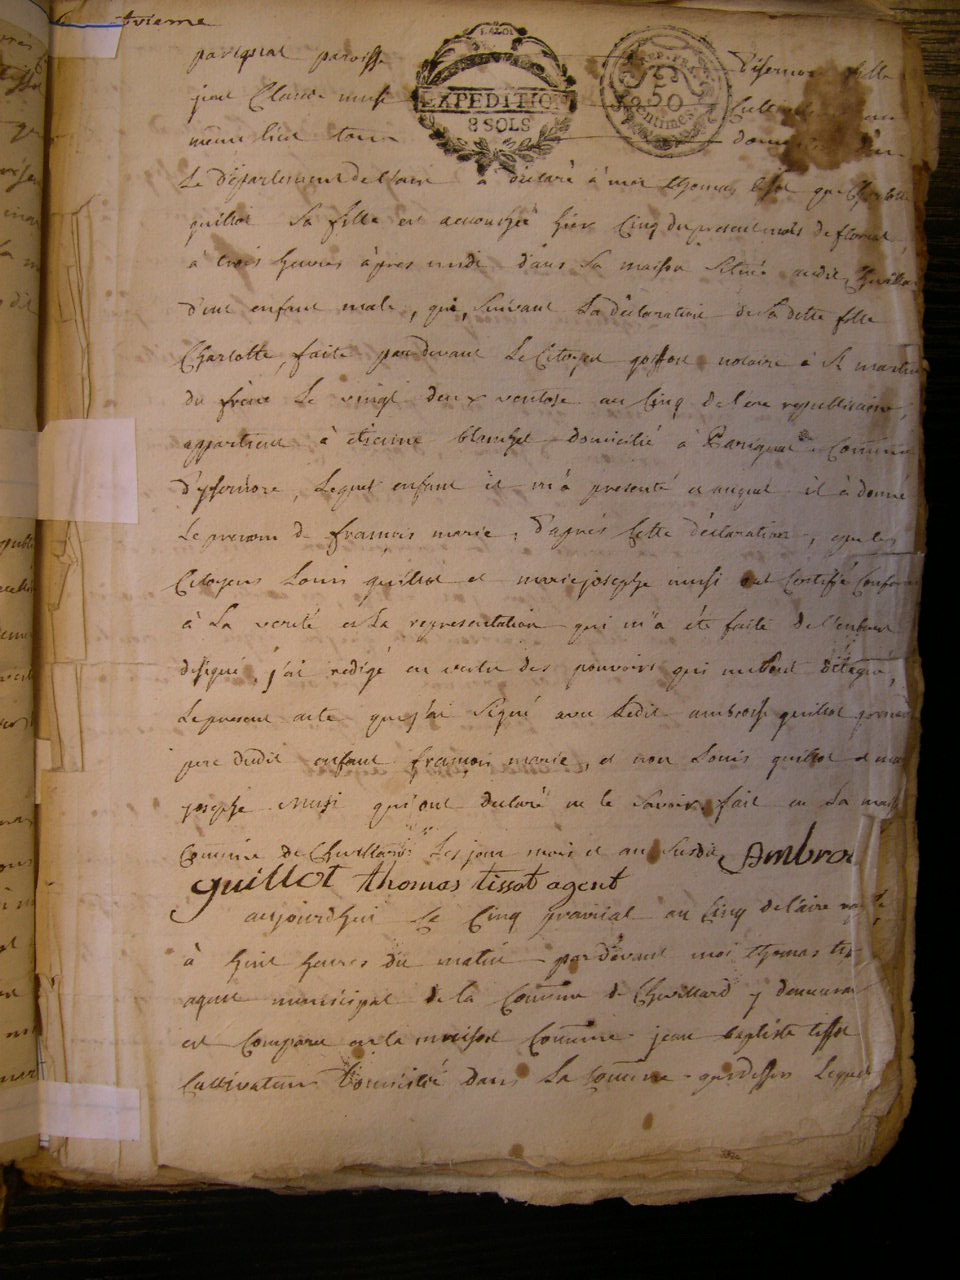 trieme
parignat paroisse d'isernore
LA LOI
EXPEDITION
8 SOLS
REP. FRA.
50
centimes
jean Claude
même lieu tous
Le Departement de l'ain a déclaré à moi thomas tissot que Charlotte
guillot sa fille est accouchée hier Cinq du present mois de floreal
a trois heures après midi dans sa maison située audit Chevillard
d'un enfant male, qui, suivant la déclaration de la ditte fille
Charlotte, faite par devant Le Citoyen notaire à St martin
du frene Le vingt deux ventose an Cinq de l'ere republicaine,
appartient à etienne blanchet domicilié à Parignat Commune
d'ysernore, Lequel enfant il m'a presenté et auquel il a donné
Le prenom de francois marie, d'après cette déclaration, que les
Citoyens Louis guillot et marie josephe ont Certifié Conforme
à La verité et la representation qui m'a été faite de l'enfant
designé, j'ai redigé en vertu des pouvoirs qui me sont délégués,
Le present acte que j'ai signé avec Ledit ambroise guillot grand
pere dudit enfant francois marie, et non Louis guillot et marie
josephe qui ont declaré ne le savoir. fait en La maison
Commune de Chevillard Les jour mois et an susdit Ambroi
guillot thomas tissot agent
aujourdhui Le Cinq prairial an Cinq de l'aire
à huit heures du matin par devant moi thomas tis
agent municipal de la Comune de Chevillard y demeurant
est Comparu en la maison Comune jean baptiste tissot
Cultivateur domicilié dans La comune par dessus Lequel